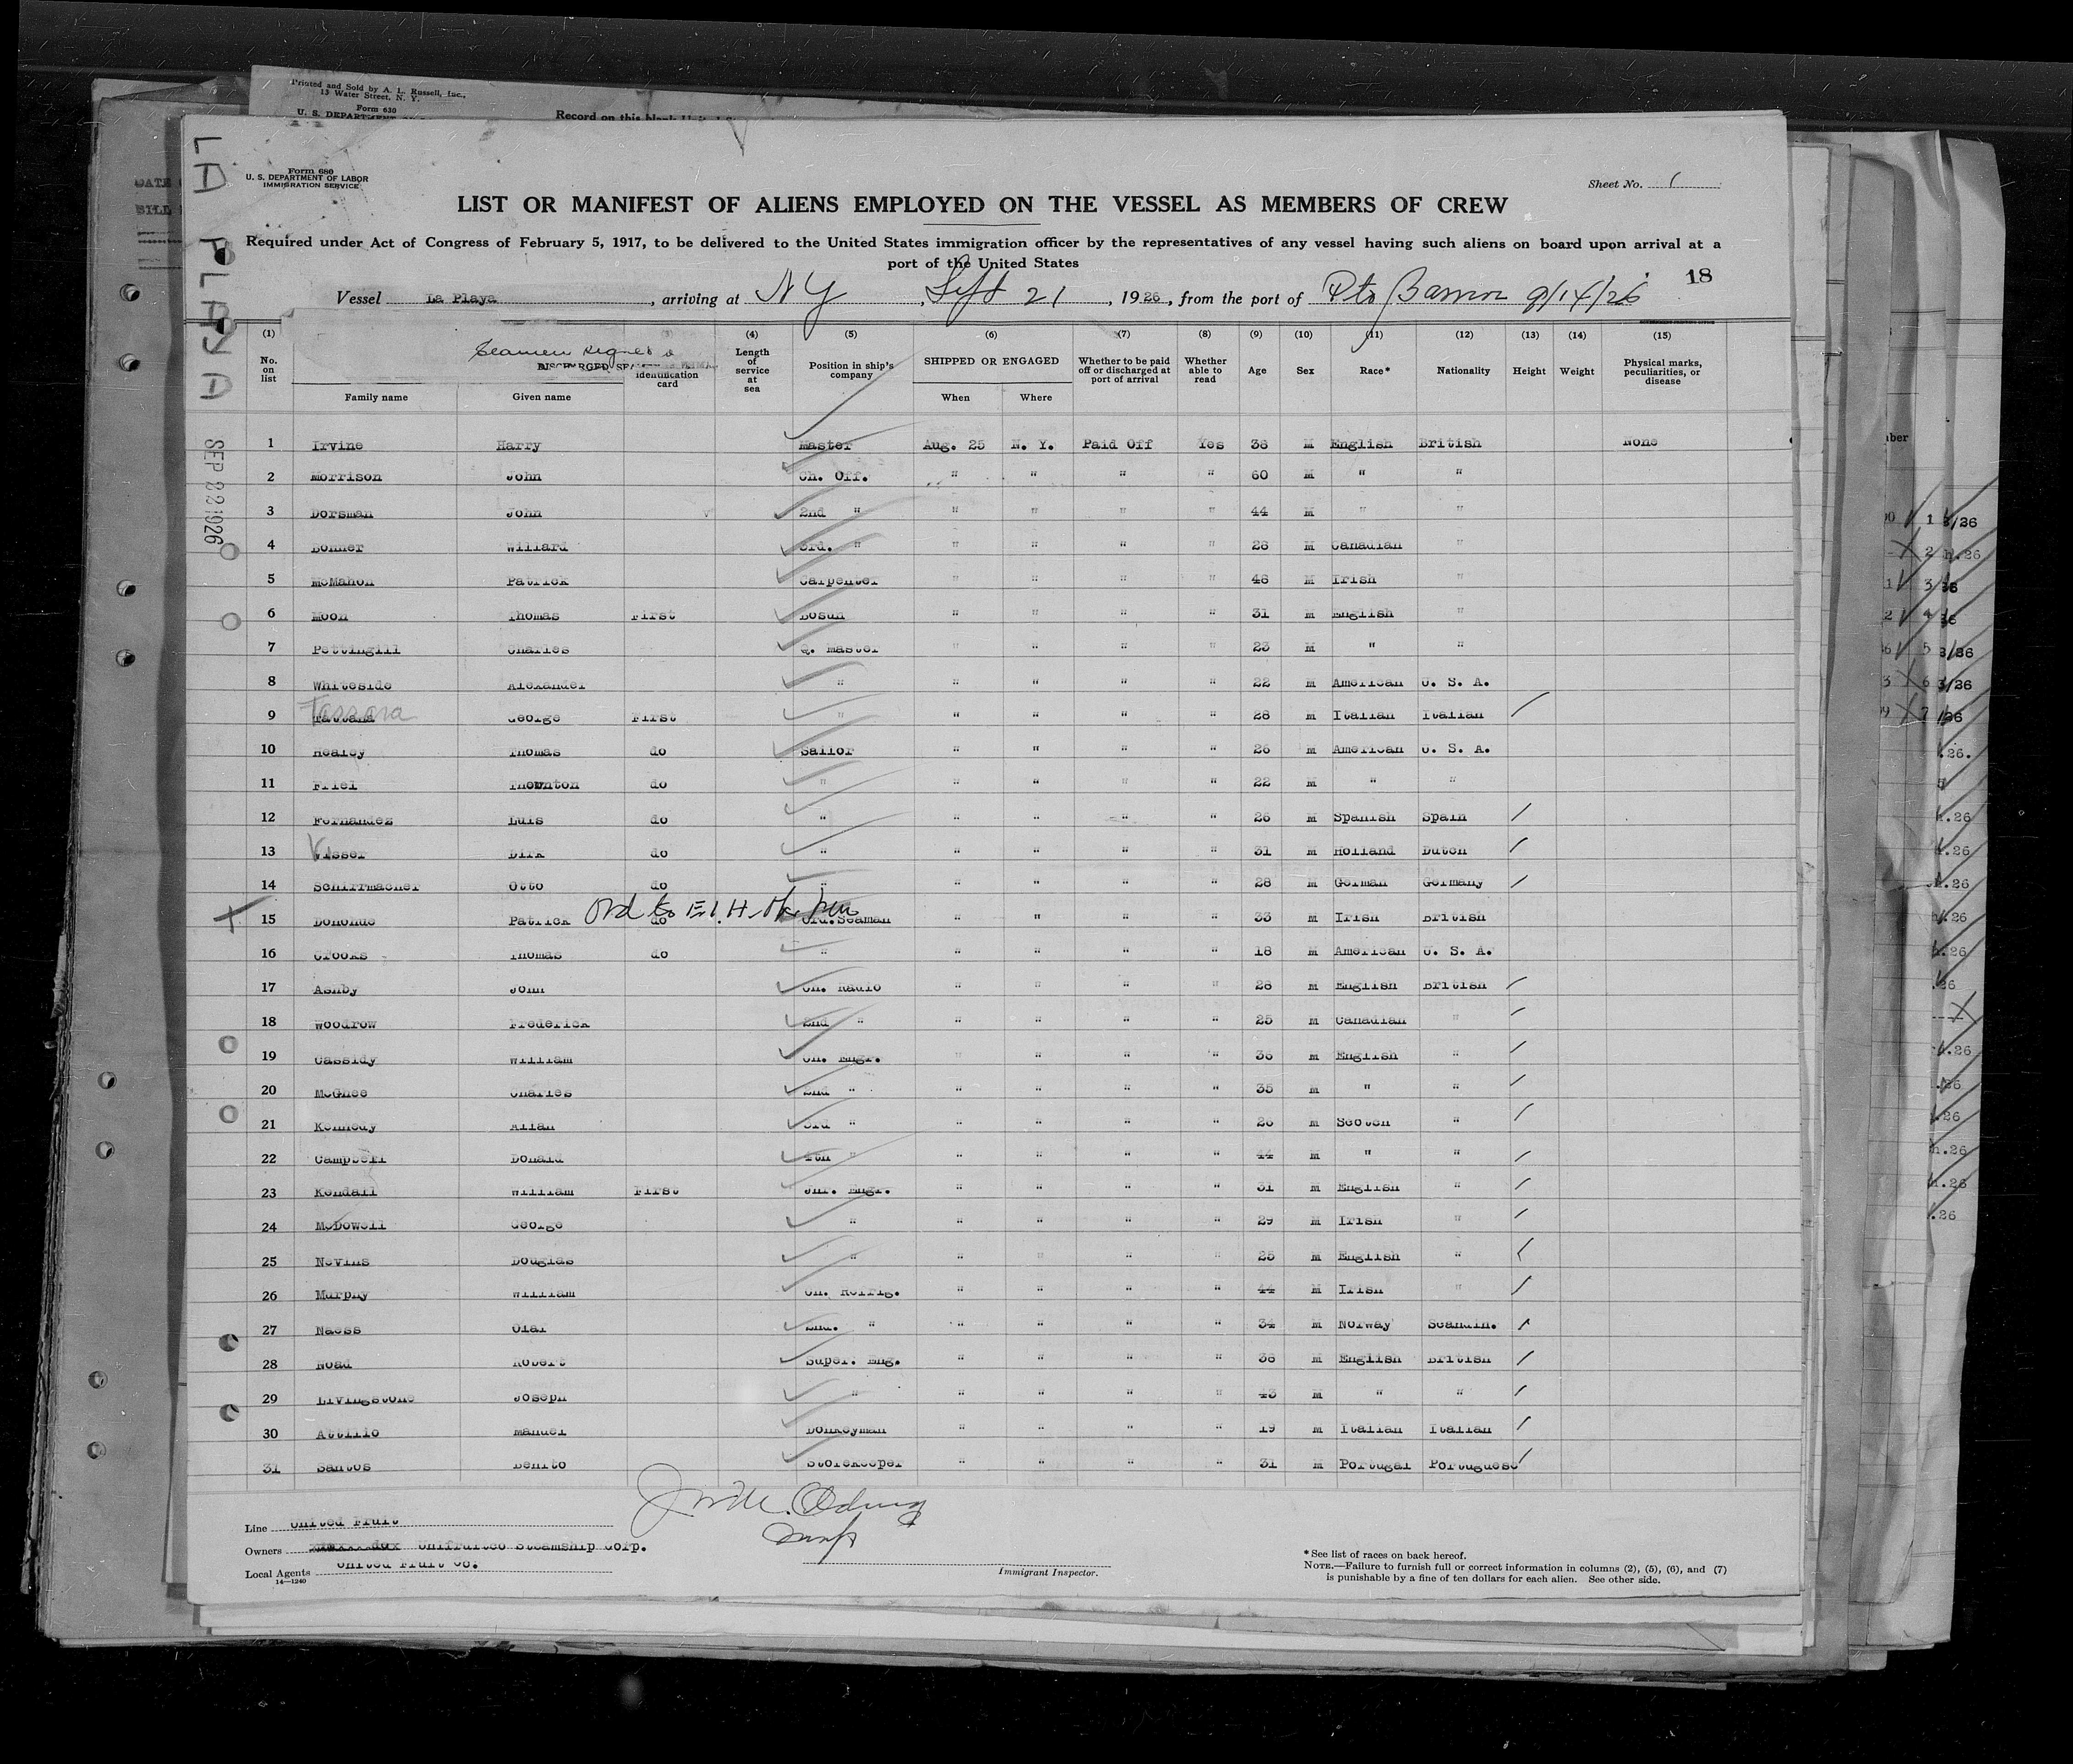 Printed and Sold by A. L. Russell, Inc.,
13 Water Street, N. Y.
Form 630
U. S. DEPARTMENT
Record on this blank
LA PLAYA
SEP 22 1926
Form 680
U. S. DEPARTMENT OF LABOR
IMMIGRATION SERVICE
Sheet No. 1
LIST OR MANIFEST OF ALIENS EMPLOYED ON THE VESSEL AS MEMBERS OF CREW
Required under Act of Congress of February 5, 1917, to be delivered to the United States immigration officer by the representatives of any vessel having such aliens on board upon arrival at a
port of the United States
18
Vessel La Playa, arriving at NY, Sept 21, 1926, from the port of Pto Barrios 9/14/26
(1) (3) (4) (5) (6) (7) (8) (9) (10) (11) (12) (13) (14) (15)
No. on list Family name Given name identification card Length of service at sea Position in ship's company SHIPPED OR ENGAGED When Where Whether to be paid off or discharged at port of arrival Whether able to read Age Sex Race* Nationality Height Weight Physical marks, peculiarities, or disease
Seamen signed
DISCHARGED
1 Irvine Harry Master Aug. 25 N. Y. Paid Off Yes 38 M English British None
2 Morrison John Ch. Off. " " " " 60 M " "
3 Dorsman John 2nd " " " " " 44 M " "
4 Bonner Willard 3rd. " " " " " 28 M Canadian "
5 McMahon Patrick Carpenter " " " " 48 M Irish "
6 Moon Thomas First Bosun " " " " 31 M English "
7 Pettingill Charles Q. Master " " " " 23 M " "
8 Whiteside Alexander " " " " " 22 M American U. S. A.
9 Tassara George First " " " " " 28 M Italian Italian
10 Healey Thomas do Sailor " " " " 26 M American U. S. A.
11 Friel Thornton do " " " " " 22 M " "
12 Fernandez Luis do " " " " " 26 M Spanish Spain
13 Visser Dirk do " " " " " 31 M Holland Dutch
14 Schirrmacher Otto do " " " " " 28 M German Germany
15 Donohue Patrick do Ord.Seaman " " " " 33 M Irish British
Ord to E.I.
16 Crooks Thomas do " " " " " 18 M American U. S. A.
17 Ashby John Ch. Radio " " " " 28 M English British
18 Woodrow Frederick 2nd " " " " " 25 M Canadian "
19 Cassidy William Ch. Engr. " " " " 36 M English "
20 McGhee Charles 2nd " " " " " 35 M " "
21 Kennedy Allan 3rd " " " " " 26 M Scotch "
22 Campbell Donald 4th " " " " " 44 M " "
23 Kendall William First Jnr. Engr. " " " " 31 M English "
24 McDowell George " " " " " 29 M Irish "
25 Nevins Douglas " " " " " 25 M English "
26 Murphy William Ch. Refrig. " " " " 44 M Irish "
27 Naess Olaf 2nd. " " " " " 34 M Norway Scandin.
28 Noad Robert Super. Eng. " " " " 38 M English British
29 Livingstone Joseph " " " " " 43 M " "
30 Attilio Manuel Donkeyman " " " " 19 M Italian Italian
31 Santos Benito Storekeeper " " " " 31 M Portugal Portuguese
Line United Fruit
Owners Unifruitco Steamship Corp.
Local Agents United Fruit Co.
14—1240
Immigrant Inspector.
* See list of races on back hereof.
NOTE.—Failure to furnish full or correct information in columns (2), (5), (6), and (7)
is punishable by a fine of ten dollars for each alien. See other side.